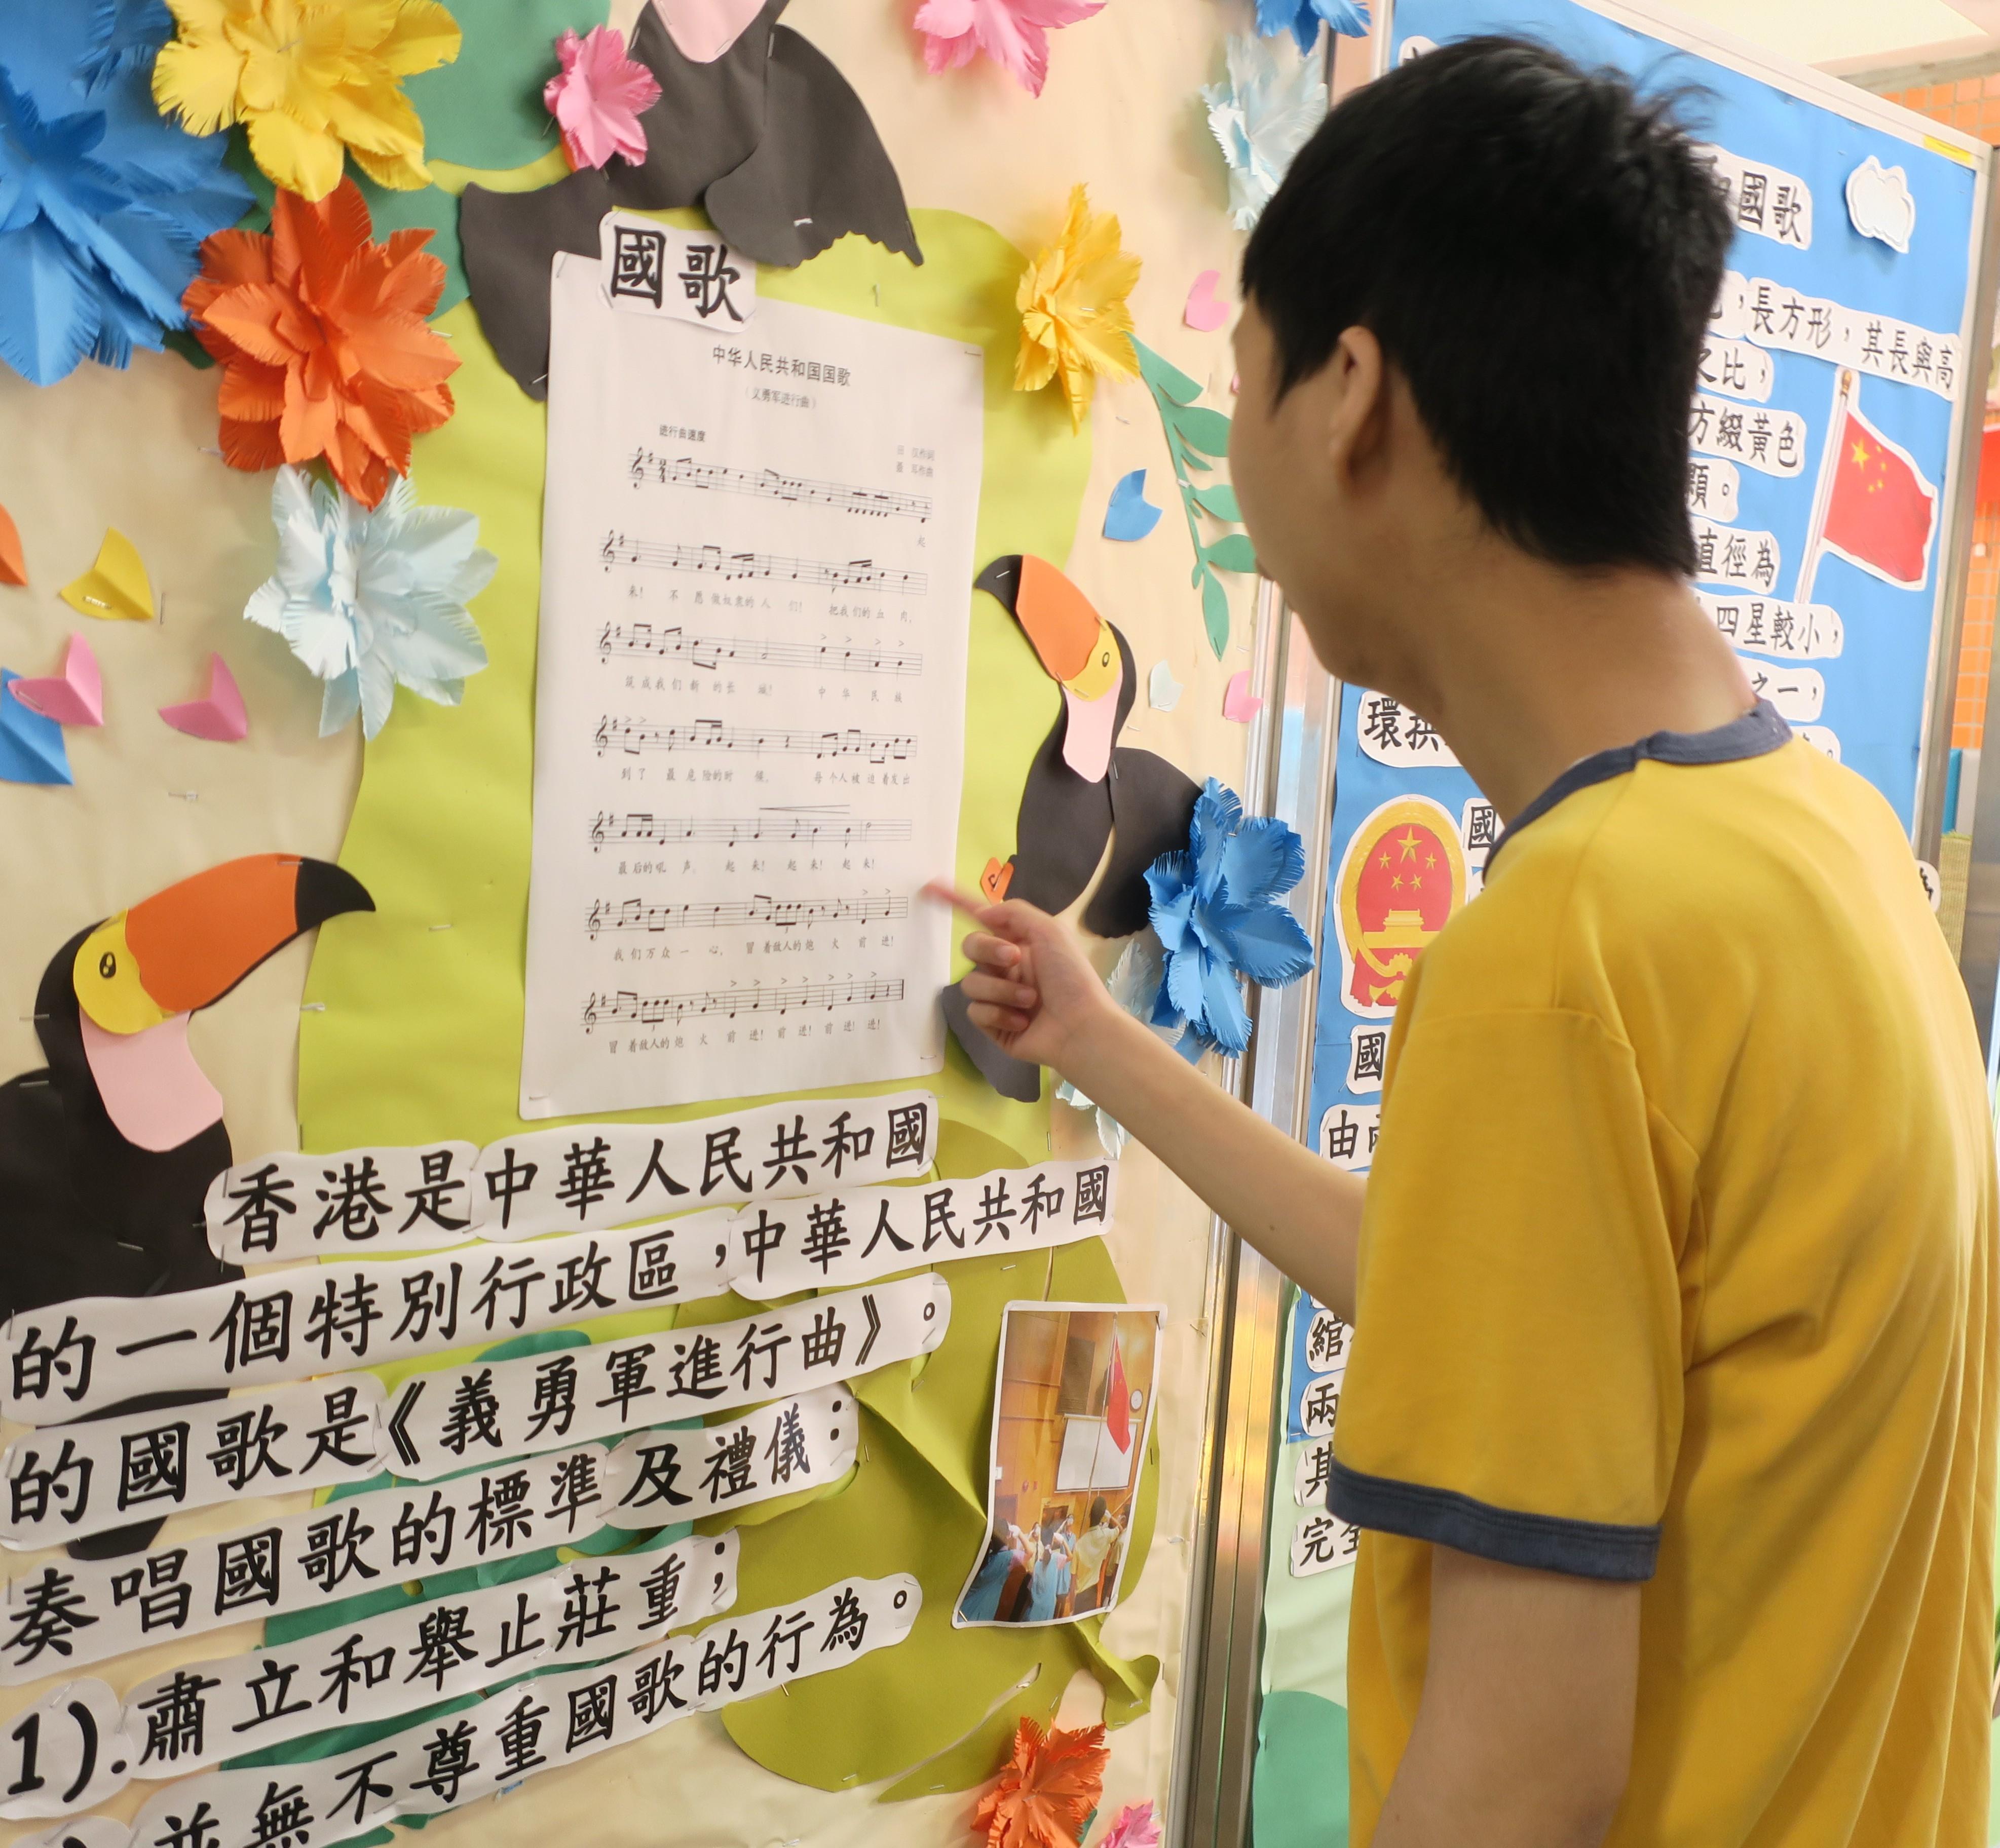 國歌
中华人民共和国国歌
（义勇军进行曲）
进行曲速度
田 汉作词
聂 耳作曲
起
来！ 不 愿 做奴隶的 人 们！ 把我们的 血 肉，
筑 成我们 新 的长 城！ 中 华 民 族
到 了 最 危 险的时 候， 每 个人 被 迫 着发出
最后的吼 声。 起 来！ 起 来！ 起 来！
我 们 万 众 一 心， 冒 着敌人的 炮 火 前 进！
冒 着敌人的 炮 火 前 进！ 前 进！ 前 进！ 进！
香港是中華人民共和國
的一個特別行政區，中華人民共和國
的國歌是《義勇軍進行曲》。
奏唱國歌的標準及禮儀：
1).肅立和舉止莊重；
並無不尊重國歌的行為。
國歌
，長方形，其長與高
之比，
方綴黃色
顆。
直徑為
四星較小，
之一，
環拱
國
國
由
綰
兩
其
完全